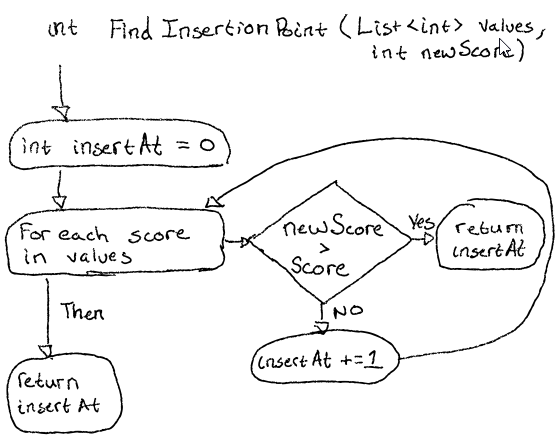 int Find Insertion Point (List<int> values,
int newScore)
int insertAt = 0
For each score
in values
newScore
>
Score
Yes
return
insertAt
NO
insertAt += 1
Then
return
insertAt